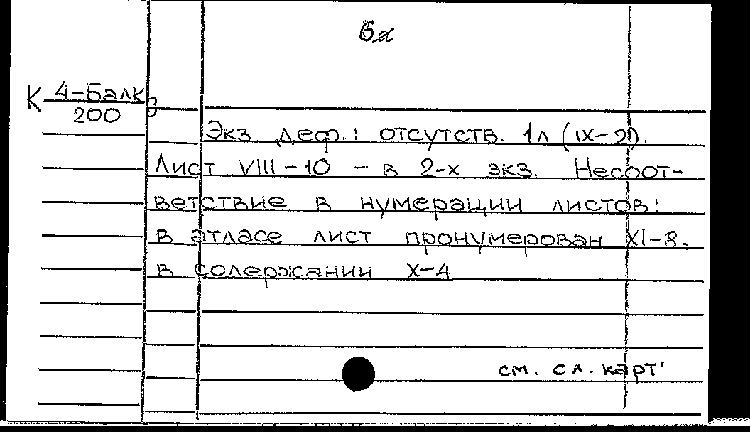 6д
К 4-Балк
200
3
Экз деф.: отсутств. 1л (IX-2).
Лист VIII-10 - в 2-х экз. Несоот-
ветствие в нумерации листов:
в атласе лист пронумерован XI-8,
в содержании X-4
см. сл. карт'